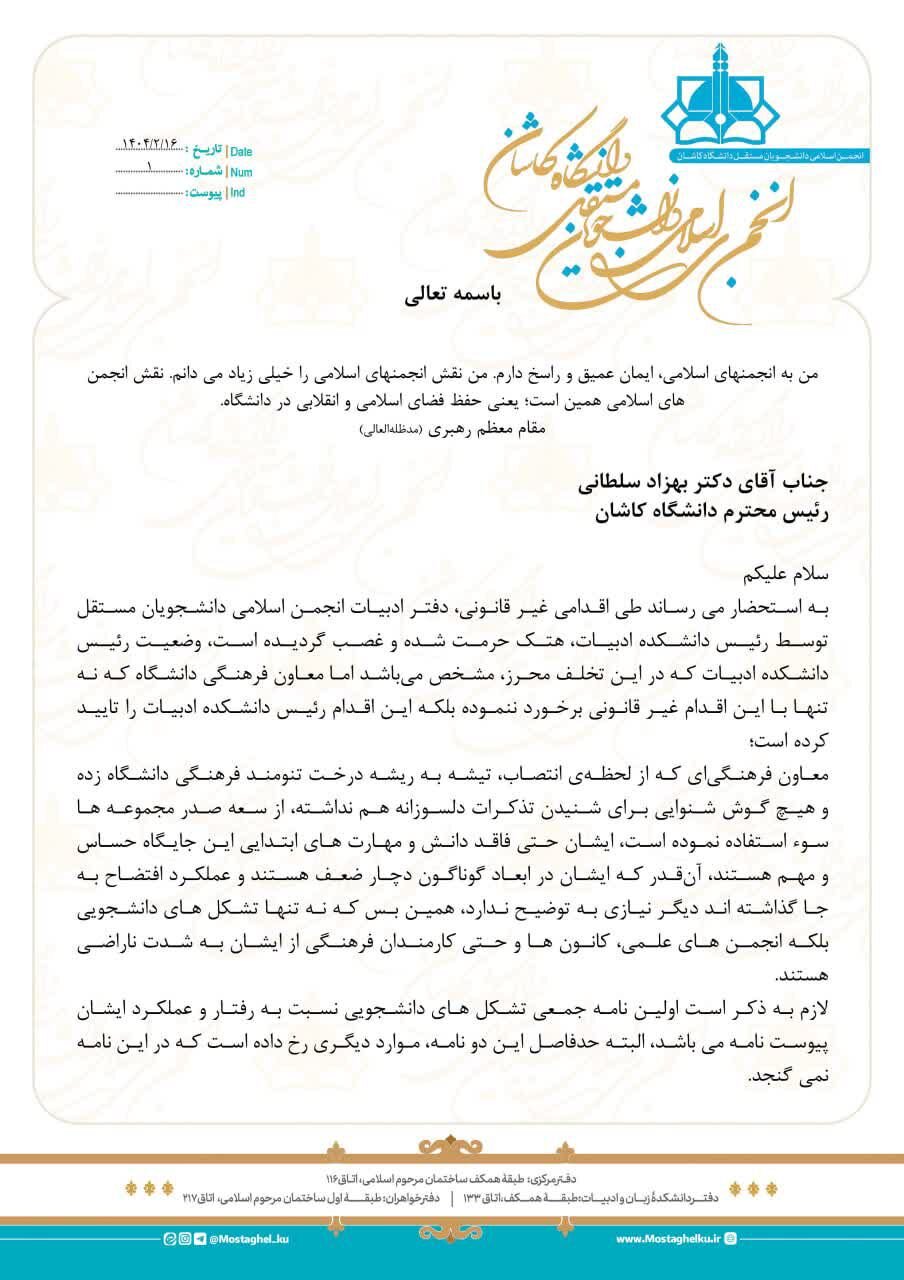 انجمن اسلامی دانشجویان مستقل دانشگاه کاشان
انجمن اسلامی دانشجویان مستقل دانشگاه کاشان
Date | تاریخ : ۱۴۰۴/۲/۱۶
Num | شماره: ۱
Ind | پیوست:
باسمه تعالی
من به انجمنهای اسلامی، ایمان عمیق و راسخ دارم. من نقش انجمنهای اسلامی را خیلی زیاد می دانم. نقش انجمن
های اسلامی همین است؛ یعنی حفظ فضای اسلامی و انقلابی در دانشگاه.
مقام معظم رهبری (مدظله‌العالی)
جناب آقای دکتر بهزاد سلطانی
رئیس محترم دانشگاه کاشان
سلام علیکم
به استحضار می رساند طی اقدامی غیر قانونی، دفتر ادبیات انجمن اسلامی دانشجویان مستقل
توسط رئیس دانشکده ادبیات، هتک حرمت شده و غصب گردیده است، وضعیت رئیس
دانشکده ادبیات که در این تخلف محرز، مشخص می‌باشد اما معاون فرهنگی دانشگاه که نه
تنها با این اقدام غیر قانونی برخورد ننموده بلکه این اقدام رئیس دانشکده ادبیات را تایید
کرده است؛
معاون فرهنگی‌ای که از لحظه‌ی انتصاب، تیشه به ریشه درخت تنومند فرهنگی دانشگاه زده
و هیچ گوش شنوایی برای شنیدن تذکرات دلسوزانه هم نداشته، از سعه صدر مجموعه ها
سوء استفاده نموده است، ایشان حتی فاقد دانش و مهارت های ابتدایی این جایگاه حساس
و مهم هستند، آن‌قدر که ایشان در ابعاد گوناگون دچار ضعف هستند و عملکرد افتضاح به
جا گذاشته اند دیگر نیازی به توضیح ندارد، همین بس که نه تنها تشکل های دانشجویی
بلکه انجمن های علمی، کانون ها و حتی کارمندان فرهنگی از ایشان به شدت ناراضی
هستند.
لازم به ذکر است اولین نامه جمعی تشکل های دانشجویی نسبت به رفتار و عملکرد ایشان
پیوست نامه می باشد، البته حدفاصل این دو نامه، موارد دیگری رخ داده است که در این نامه
نمی گنجد.
دفترمرکزی: طبقهٔ همکف ساختمان مرحوم اسلامی، اتاق۱۱۶
دفتردانشکدهٔ زبان و ادبیات:طبقهٔ همکف،اتاق۱۳۳ | دفترخواهران: طبقهٔ اول ساختمان مرحوم اسلامی، اتاق۲۱۷
@Mostaghel_ku
www.Mostaghelku.ir